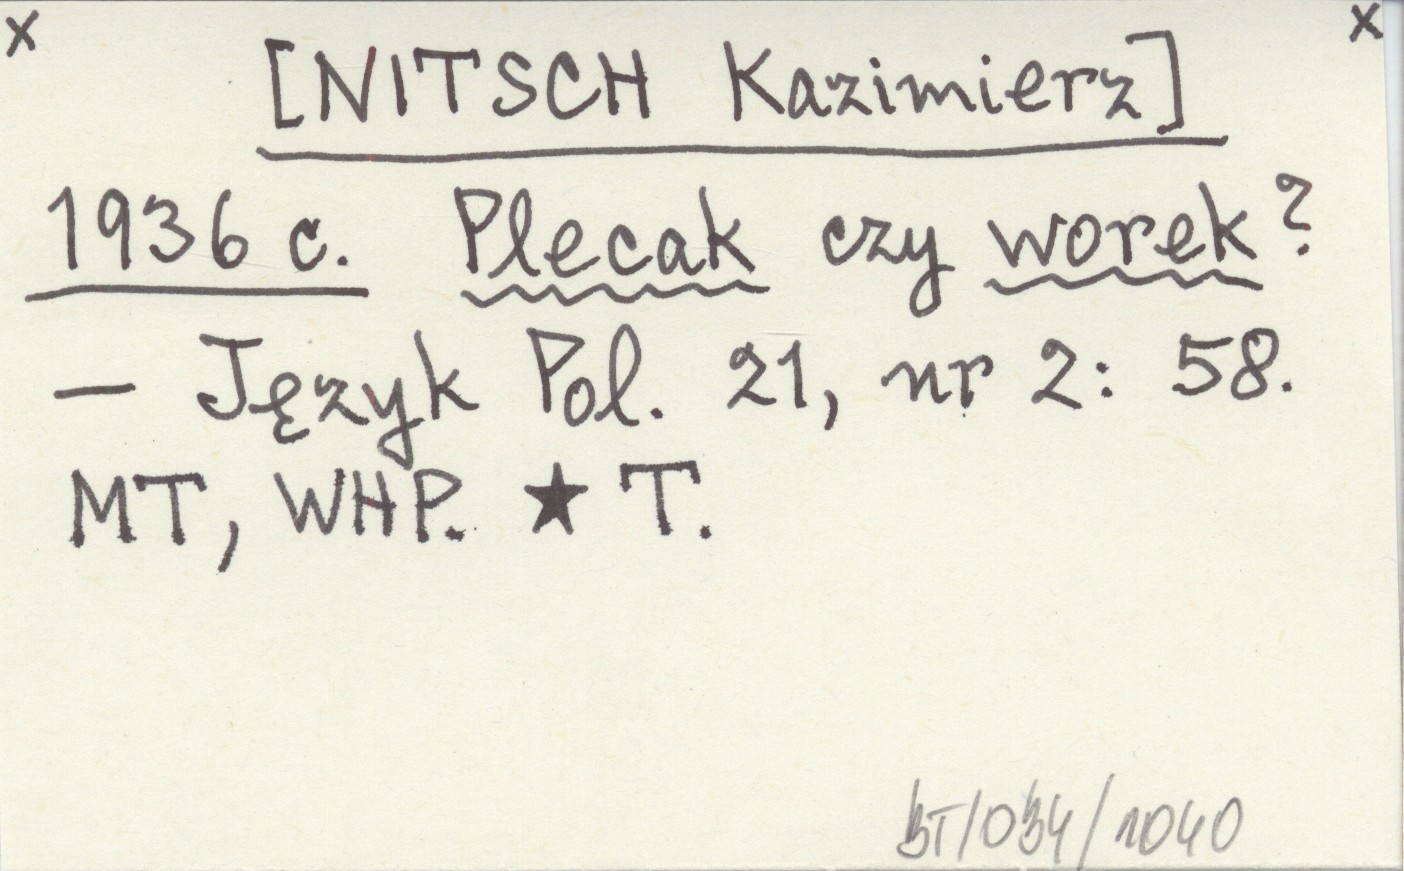 x x
[NITSCH Kazimierz]
1936 c. Plecak czy worek?
— Język Pol. 21, nr 2: 58.
MT, WHP. ★ T.
BT/034/1040